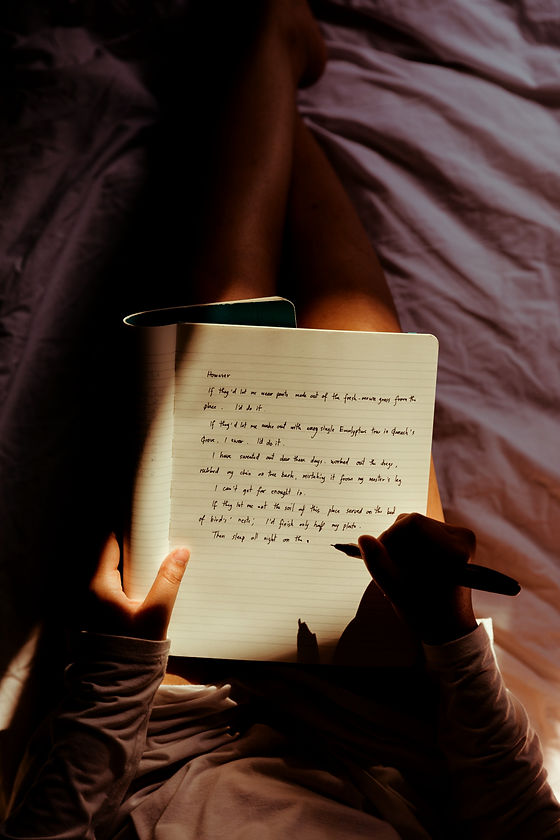 However
If they'd let me wear pants made out of the fresh-mown grass from this
place. I'd do it.
If they'd let me make out with every single Eucalyptus tree in Queen's
Grove. I swear. I'd do it.
I have sweated out dew these days. worked out the dregs,
rubbed my chin on the bark, mistaking it from my master's leg
I can't get far enough in.
If they let me eat the soil of this place served on the bed
of birds' nests; I'd finish only half my plate.
Then sleep all night on the